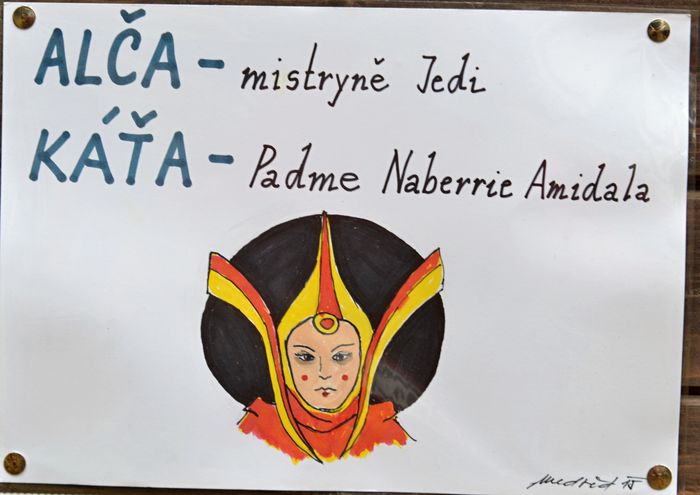 ALČA - mistryně Jedi
KÁŤA - Padme Naberrie Amidala